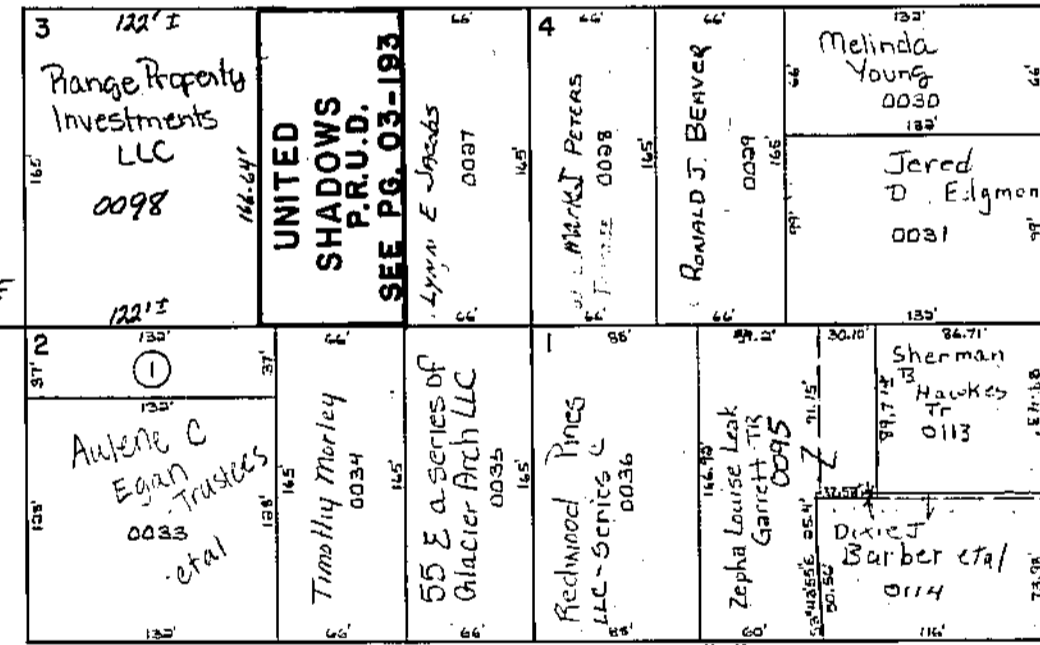 3
122' ±
Range Property
Investments
LLC
0098
165'
166.64'
122' ±
UNITED
SHADOWS
P.R.U.D.
SEE PG. 03-193
66'
LYNN E Jacobs
0027
165'
66'
4
66'
MARK J PETERS
0028
165'
66'
66'
RONALD J. BEAVER
0029
165'
66'
132'
Melinda
Young
0030
66'
66'
132'
Jered
D. Edgmon
0031
99'
99'
132'
2
132'
37'
1
37'
132'
Aulene C
Egan
Trustees
0033
etal
128'
128'
132'
66'
Timothy Morley
0034
165'
165'
66'
55 E a series of
Glacier Arch LLC
0035
165'
66'
1
88'
Redwood Pines
LLC-Series C
0036
88'
166.98'
Zepha Louise Leak
Garrett TR
0095
60'
30.10'
91.15'
Z
25.4'
50.56'
86.71'
Sherman
B
Hawkes
Tr
0113
89.71±
Dixie J
Barber etal
0114
73.98'
116'